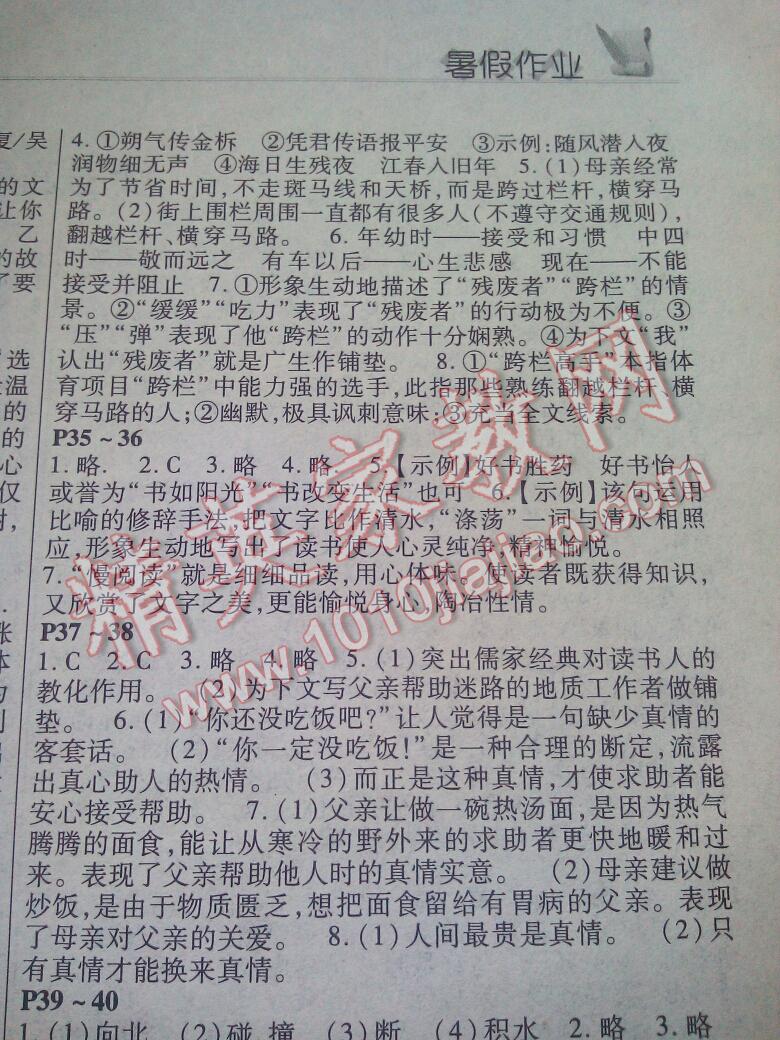 暑假作业
夏/吴
的文
让你
乙
的故
了要
选
温
的
的
心
仅
4. ①朔气传金柝 ②凭君传语报平安 ③示例:随风潜入夜
润物细无声 ④海日生残夜 江春人旧年 5. (1)母亲经常
为了节省时间,不走斑马线和天桥,而是跨过栏杆,横穿马
路。(2)街上围栏周围一直都有很多人(不遵守交通规则),
翻越栏杆、横穿马路。 6. 年幼时——接受和习惯 中四
时——敬而远之 有车以后——心生悲感 现在——不能
接受并阻止 7. ①形象生动地描述了“残废者”“跨栏”的情
景。②“缓缓”“吃力”表现了“残废者”的行动极为不便。③
“压”“弹”表现了他“跨栏”的动作十分娴熟。④为下文“我”
认出“残废者”就是广生作铺垫。 8. ①“跨栏高手”本指体
育项目“跨栏”中能力强的选手,此指那些熟练翻越栏杆、横
穿马路的人;②幽默,极具讽刺意味;③充当全文线索。
P35~36
1. 略. 2. C 3. 略 4. 略. 5.【示例】好书胜药 好书怡人
或誉为“书如阳光”“书改变生活”也可 6.【示例】该句运用
比喻的修辞手法,把文字比作清水,“涤荡”一词与清水相照
应,形象生动地写出了读书使人心灵纯净,精神愉悦。
7. “慢阅读”就是细细品读,用心体味。使读者既获得知识,
又欣赏了文字之美,更能愉悦身心,陶冶性情。
P37~38
1. C 2. C 3. 略 4. 略 5. (1)突出儒家经典对读书人的
教化作用。 (2)为下文写父亲帮助迷路的地质工作者做铺
垫。 6. (1)“你还没吃饭吧?”让人觉得是一句缺少真情的
客套话。 (2)“你一定没吃饭!”是一种合理的断定,流露
出真心助人的热情。 (3)而正是这种真情,才使求助者能
安心接受帮助。 7. (1)父亲让做一碗热汤面,是因为热气
腾腾的面食,能让从寒冷的野外来的求助者更快地暖和过
来。表现了父亲帮助他人时的真情实意。 (2)母亲建议做
炒饭,是由于物质匮乏,想把面食留给有胃病的父亲。表现
了母亲对父亲的关爱。 8. (1)人间最贵是真情。 (2)只
有真情才能换来真情。
P39~40
1. (1)向北 (2)碰 撞 (3)断 (4)积水 2. 略 3. 略
精英家教网
www.1010jiajiao.com